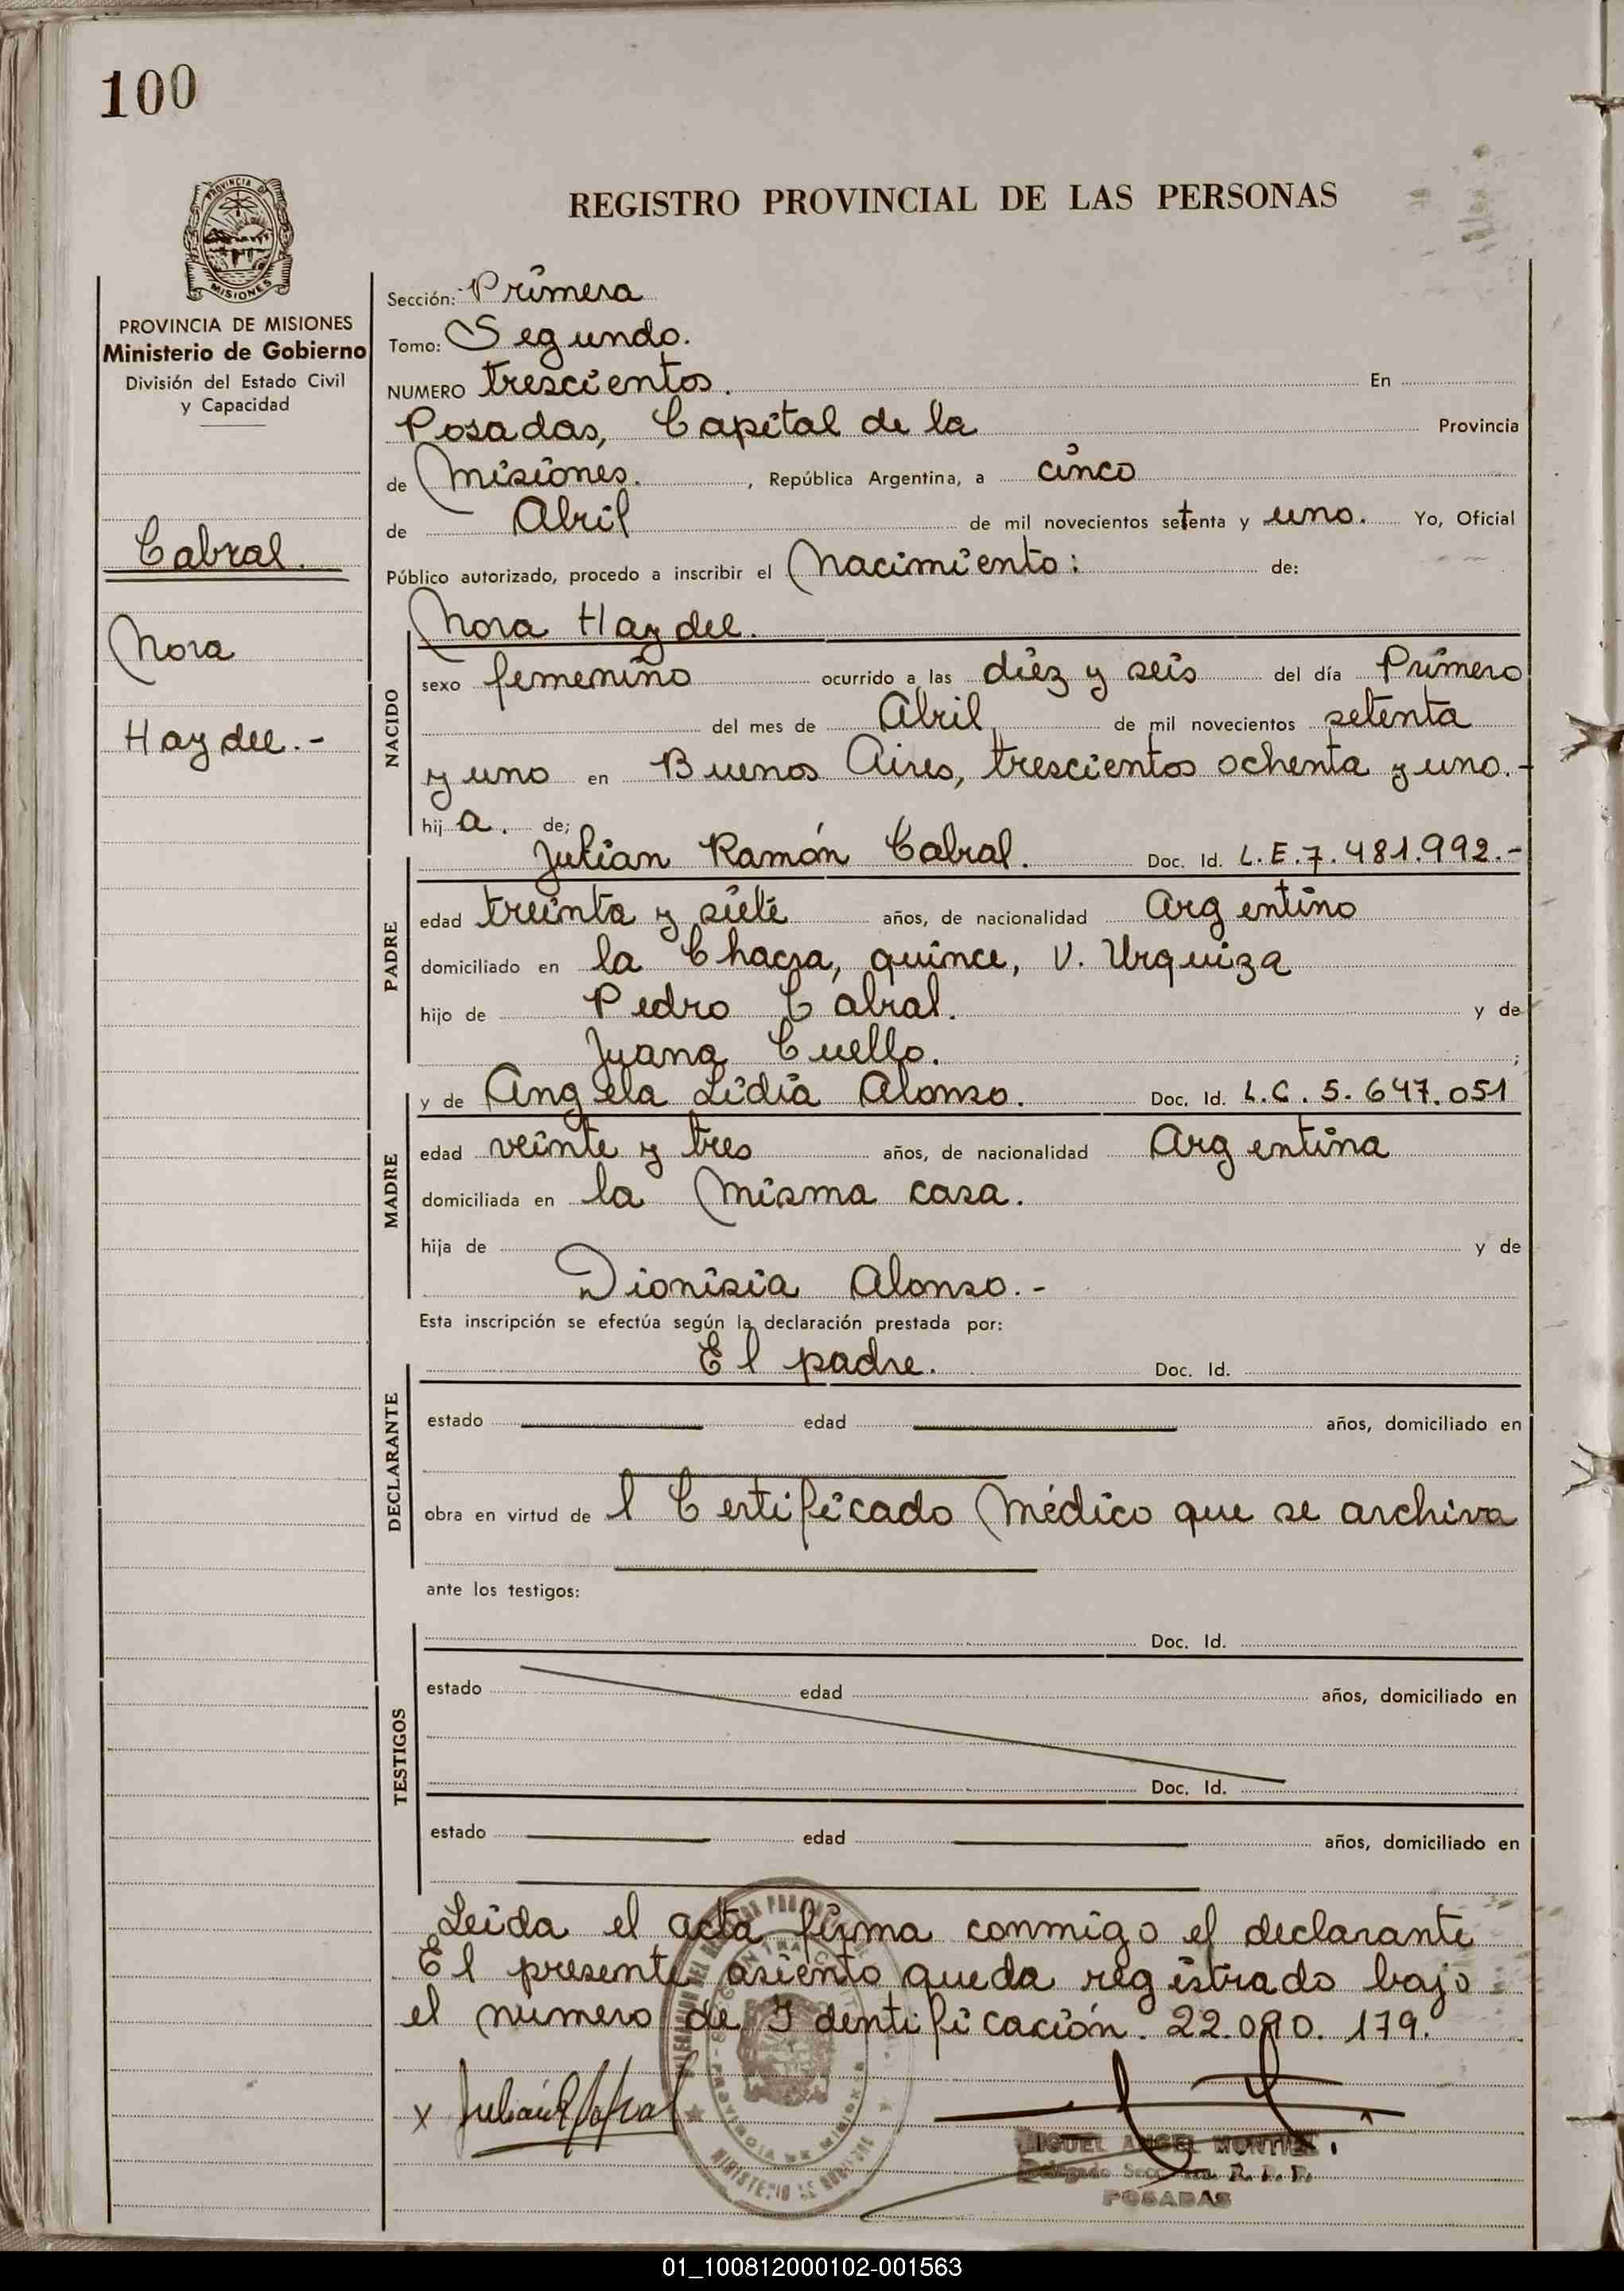 100
REGISTRO PROVINCIAL DE LAS PERSONAS
PROVINCIA DE
MISIONES
PROVINCIA DE MISIONES
Ministerio de Gobierno
División del Estado Civil
y Capacidad
Cabral.
Nora
Haydee.-
Sección: Primera
Tomo: Segundo.
NUMERO trescientos. En
Posadas, Capital de la Provincia
de Misiones. , República Argentina, a cinco
de Abril de mil novecientos setenta y uno. Yo, Oficial
Público autorizado, procedo a inscribir el Nacimiento: de:
Nora Haydee.
NACIDO
sexo femenino ocurrido a las diez y seis del día Primero
del mes de Abril de mil novecientos setenta
y uno en Buenos Aires, trescientos ochenta y uno.-
hij a. de;
Julian Ramón Cabral. Doc. Id. L.E.7.481.992.-
PADRE
edad treinta y siete años, de nacionalidad Argentino
domiciliado en la Chacra, quince, V. Urquiza
hijo de Pedro Cabral. y de
Juana Cuello. ;
y de Angela Lidia Alonso. Doc. Id. L.C. 5.647.051
MADRE
edad veinte y tres años, de nacionalidad Argentina
domiciliada en la misma casa.
hija de y de
Dionisia Alonso.-
Esta inscripción se efectúa según la declaración prestada por:
El padre. Doc. Id.
DECLARANTE
estado edad años, domiciliado en
obra en virtud de l Certificado Médico que se archiva
ante los testigos:
Doc. Id.
TESTIGOS
estado edad años, domiciliado en
Doc. Id.
estado edad años, domiciliado en
Leida el acta firma conmigo el declarante
El presente asiento queda registrado bajo
el numero de Identificación. 22.090.179.
x Julián R Cabral
MIGUEL ANGEL MONTIEL
Delegado R. P. P.
POSADAS
01_100812000102-001563